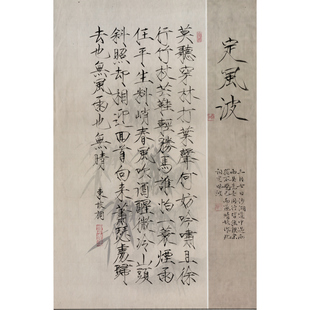 定風波
莫聽穿林打葉聲何妨吟嘯且徐
行竹杖芒鞋輕勝馬誰怕一蓑煙雨
任平生料峭春風吹酒醒微冷山頭
斜照却相迎回首向來蕭瑟處歸
去也無風雨也無晴